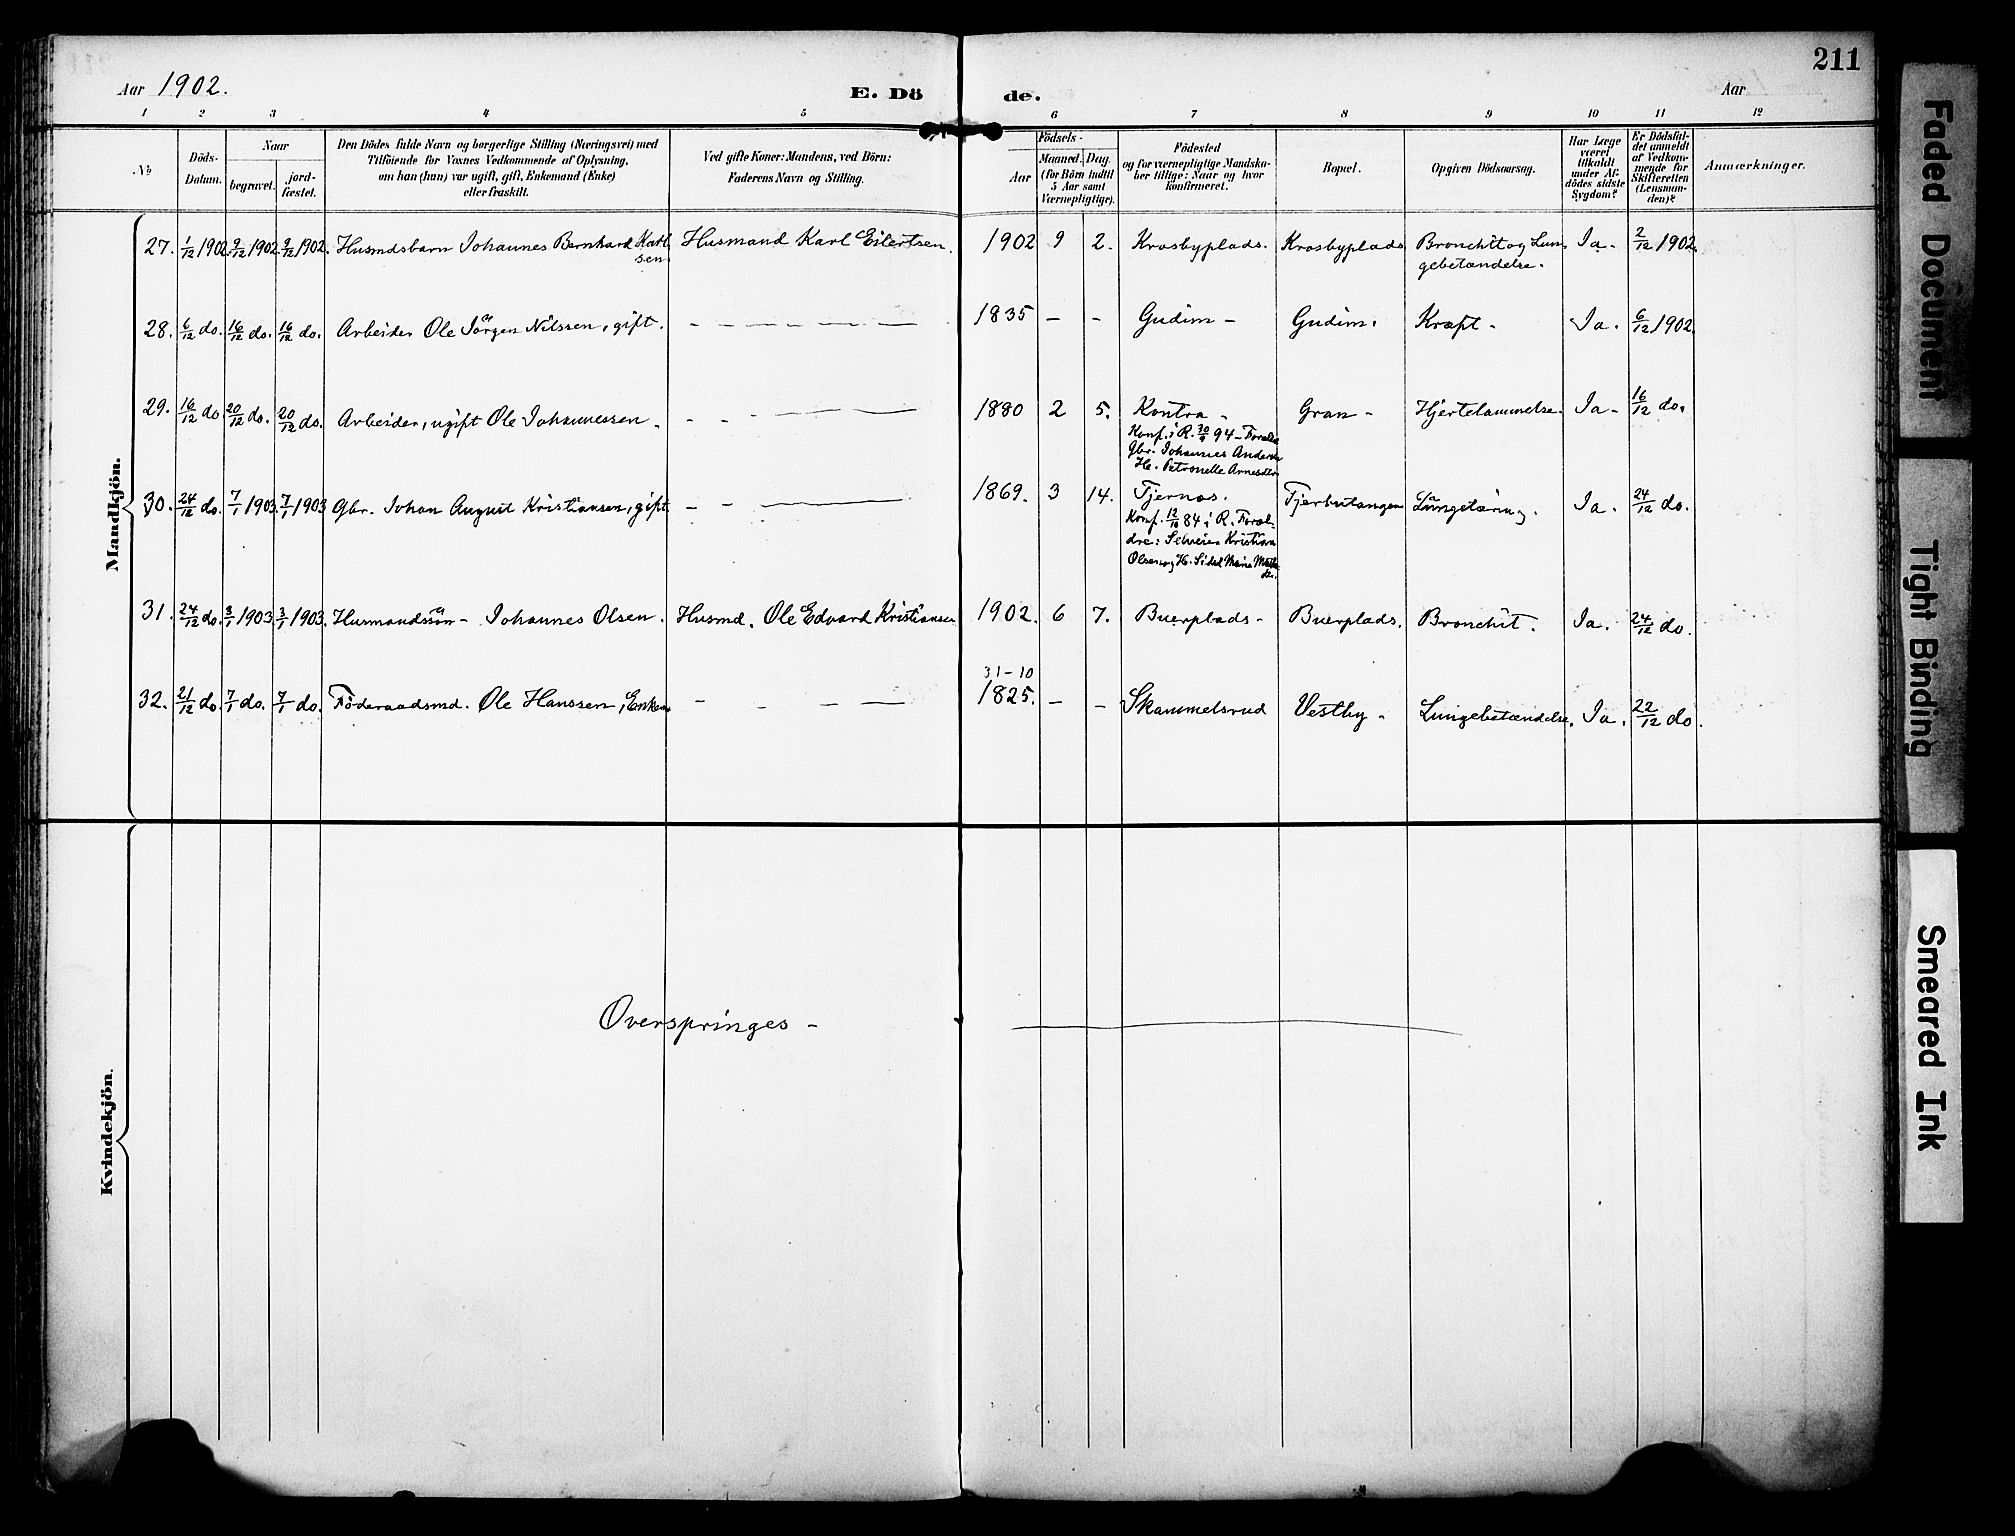 211
Aar 1902.
E. Dö de.
Aar
1 2 3 4 5 6 7 8 9 10 11 12
No
Döds-
Datum.
Naar
begravet.
jord-
fæstet.
Den Dödes fulde Navn og borgerlige Stilling (Næringsvei) med
Tilföiende for Voxnes Vedkommende af Oplysning,
om han (hun) var ugift, gift, Enkemand (Enke)
eller fraskilt.
Ved gifte Koner: Mandens, ved Börn:
Faderens Navn og Stilling.
Födsels-
Aar
Maaned. Dag.
(for Börn indtil
5 Aar samt
Værnepligtige).
Födested
og for værnepligtige Mandska-
ber tillige: Naar og hvor
konfirmeret.
Bopæl.
Opgiven Dödsaarsag.
Har Læge
været
tilkaldt
under Af-
dödes sidste
Sygdom?
Er Dödsfal-
det anmeldt
af Vedkom-
mende for
Skifteretten
(Lensman-
den)?
Anmærkninger.
Mandkjön.
27. 1/12 1902. 9/12 1902. 9/12 1902. Husmdsbarn Johannes Bernhard Karl-
sen. Husmand Karl Eilertsen. 1902 9 2. Krosbyplads. Krosbyplads Bronchit og Lun-
gebetændelse. Ja. 2/12 1902.
28. 6/12 do. 16/12 do. 16/12 do. Arbeider Ole Jörgen Nilssen, gift. - - - - - - 1835 - - Gudim - Gudim. Kræft - Ja. 6/12 1902.
29. 16/12 do 20/12 do. 20/12 do. Arbeider, ugift Ole Johannessen. - - - - - 1880 2 5. Kontra - Gran - Hjertelammelse. Ja - 16/12 do.
Konf. i R. 30/9 94 - Foræld
Gbr. Johannes Anders
H. Petronelle Arnesdtr
30. 24/12 do. 7/1 1903. 7/1 1903 Gbr. Johan August Kristiansen, gift - - - 1869. 3 14. Tjernæs. Tjerbutangen Lungetæring. Ja. 24/12 do.
Konf. 12/10 84 i R. Foræl-
dre: Selveier Kristian
Olsen og H. Sidsel Marie
31. 24/12 do. 3/1 1903. 3/1 1903. Husmandssön - Johannes Olsen. Husmd. Ole Edvard Kristiansen 1902. 6 7. Buerplads - Buerplads. Bronchit. Ja. 24/12 do.
31-10
32. 21/12 do. 7/1 do. 7/1 do. Föderaadsmd. Ole Hanssen, Enkem - - - - 1825. - - Skammelsrud Vestby - Lungebetændelse. Ja. 22/12 do.
Kvindekjön.
Overspringes -
Faded Document
Tight Binding
Smeared Ink